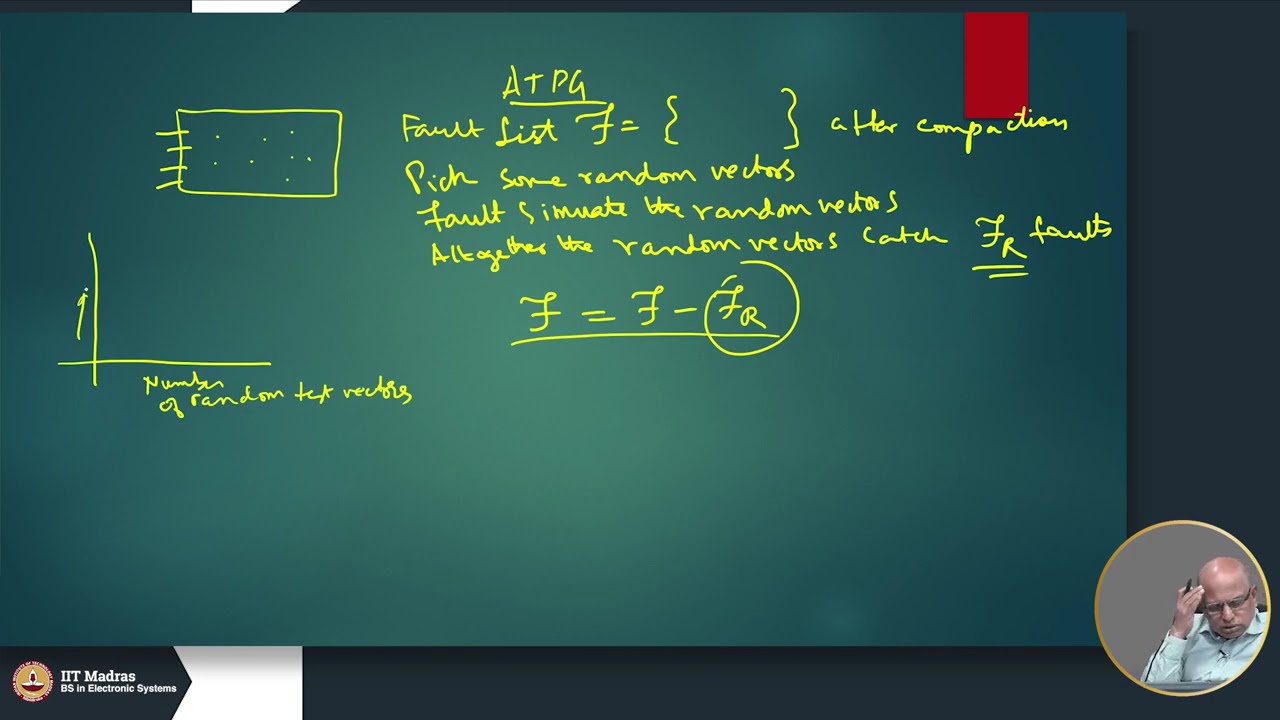 ATPG
Fault List F = { } after compaction
Pick some random vectors
Fault Simuate the random vectors
Altogether the random vectors catch F_R faults
F = F - F_R
Number
of random test vectors
IIT Madras
BS in Electronic Systems